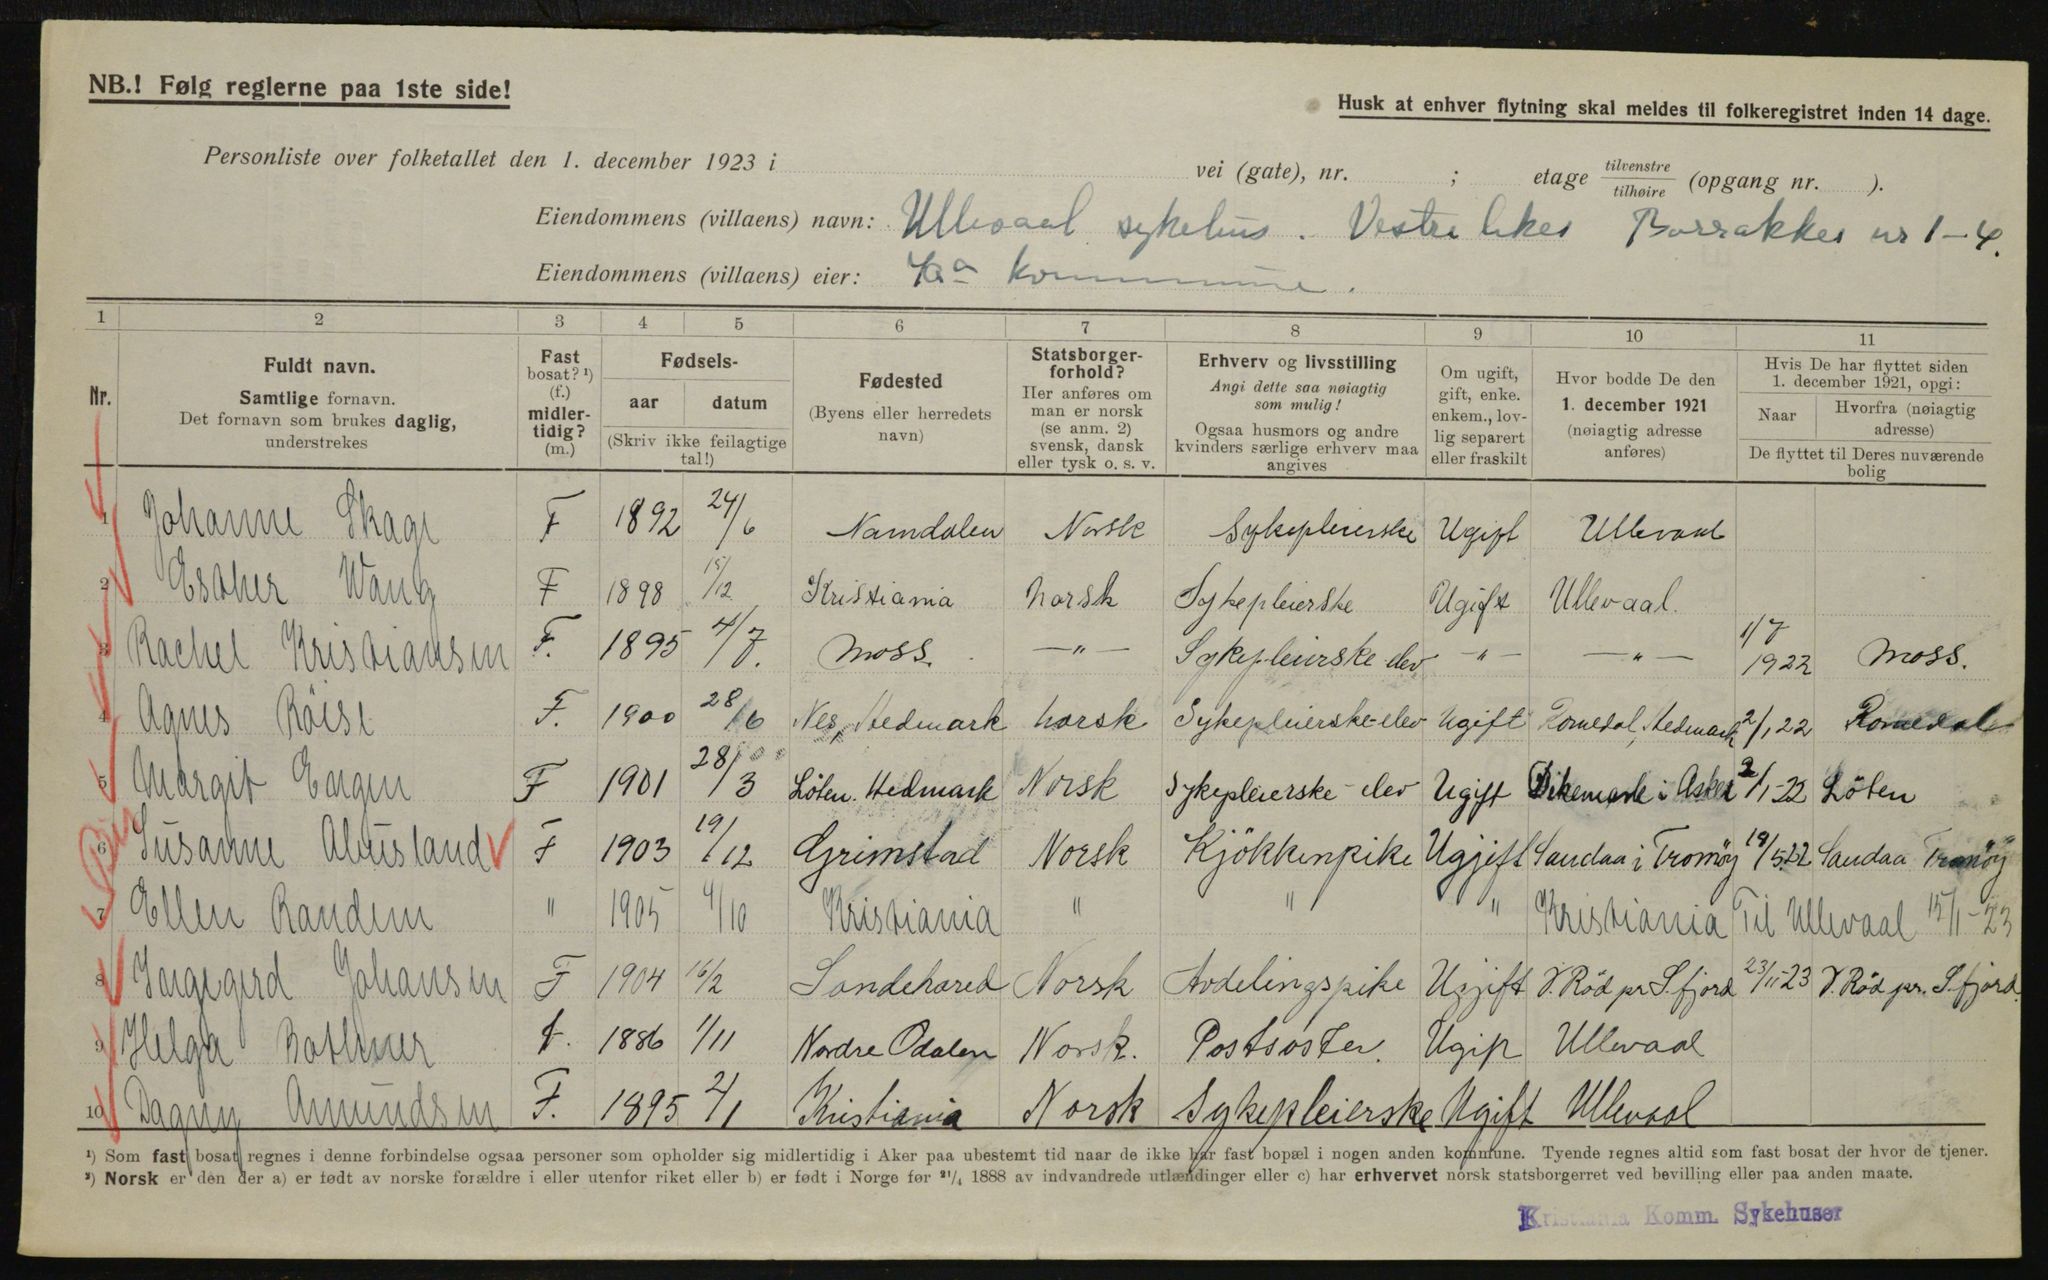 NB.! Følg reglerne paa 1ste side!
Husk at enhver flytning skal meldes til folkeregistret inden 14 dage.
Personliste over folketallet den 1. december 1923 i vei (gate), nr. ; etage tilvenstre tilhøire (opgang nr. ).
Eiendommens (villaens) navn: Ullevaal sykehus. Vestre Barrakker nr 1-4.
Eiendommens (villaens) eier: Kra kommune.
1 2 3 4 5 6 7 8 9 10 11
Nr.
Fuldt navn.
Samtlige fornavn.
Det fornavn som brukes daglig, understrekes
Fast bosat? ¹) (f.) midlertidig? (m.)
Fødsels-
aar datum
(Skriv ikke feilagtige tal!)
Fødested
(Byens eller herredets navn)
Statsborgerforhold?
Her anføres om man er norsk (se anm. 2) svensk, dansk eller tysk o. s. v.
Erhverv og livsstilling
Angi dette saa nøiagtig som mulig!
Ogsaa husmors og andre kvinders særlige erhverv maa angives
Om ugift, gift, enke. enkem., lovlig separert eller fraskilt
Hvor bodde De den 1. december 1921 (nøiagtig adresse anføres)
Hvis De har flyttet siden 1. december 1921, opgi:
Naar Hvorfra (nøiagtig adresse)
De flyttet til Deres nuværende bolig
1 Johanne Skage F 1892 24/6 Namdalen Norsk Sykepleierske Ugift Ullevaal
2 Esther Wang F 1898 15/12 Kristiania norsk Sykepleierske Ugift Ullevaal.
3 Rachel Kristiansen F. 1895 4/7. Moss. —"— Sykepleierske-elev —"— —"— 1/7 1922 Moss.
4 Agnes Röise F. 1900 28/6 Nes, Hedmark norsk Sykepleierske-elev Ugift Romedal, Hedmark 2/1 22 Romedal
5 Margit Engen F 1901 28/3 Löten. Hedmark Norsk Sykepleierske-elev Ugift Dikemark i Asker 2/1-22 Löten
6 Susanne F 1903 19/12 Grimstad Norsk Kjökkenpike Ugift Sandaa i Tromöy 19/5.22 Sandaa Tromöy
7 Ellen Randem " 1905 4/10 Kristiania " " " Kristiania Til Ullevaal 15/1-23
8 Ingegerd Johansen F 1904 16/2 Sandehared Norsk Avdelingspike Ugift V. Röd pr S.fjord 23/11-23 V. Röd pr. S.fjord.
9 Helga Bothner f. 1886 1/11 Nordre Odalen Norsk. Postsöster. Ugift Ullevaal
10 Dagny Amundsen F. 1895 2/1 Kristiania Norsk Sykepleierske Ugift Ullevaal
¹) Som fast bosat regnes i denne forbindelse ogsaa personer som opholder sig midlertidig i Aker paa ubestemt tid naar de ikke har fast bopæl i nogen anden kommune. Tyende regnes altid som fast bosat der hvor de tjener.
²) Norsk er den der a) er født av norske forældre i eller utenfor riket eller b) er født i Norge før 21/4 1888 av indvandrede utlændinger eller c) har erhvervet norsk statsborgerret ved bevilling eller paa anden maate.
Kristiania Komm. Sykehuser